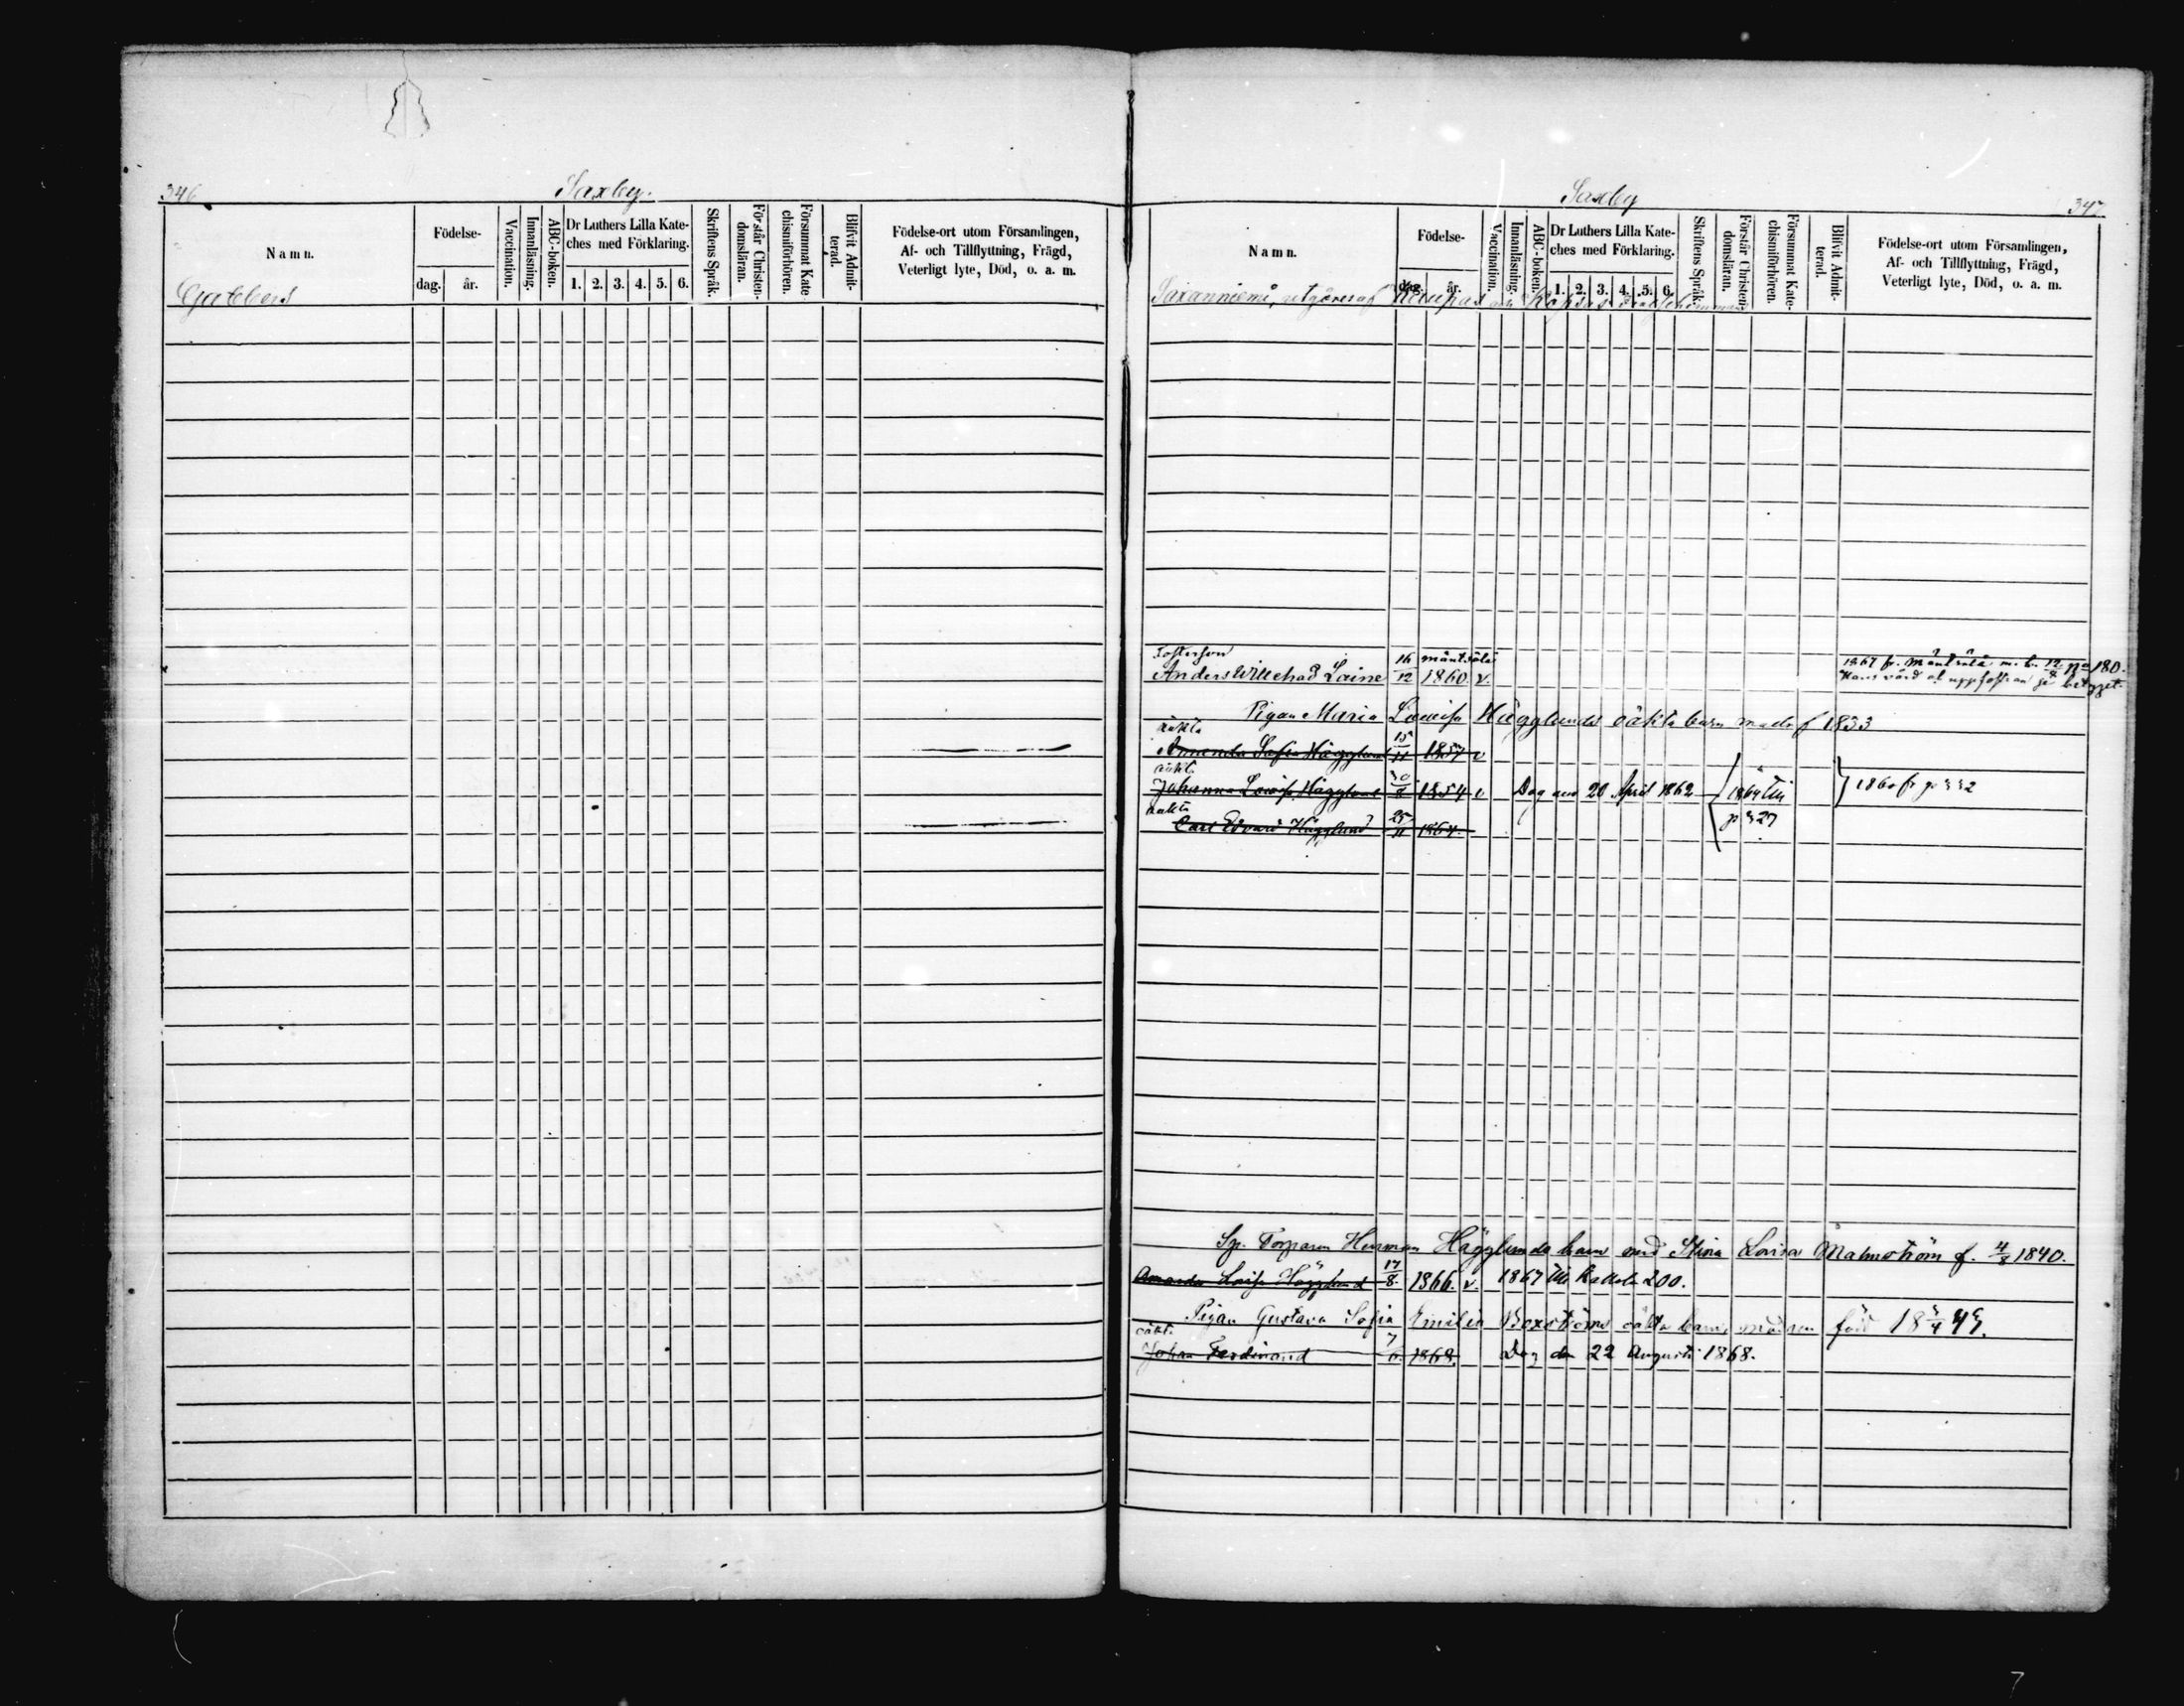 346
Saxby.
Namn.
Födelse-
dag. år.
Vaccination.
Innanläsning.
ABC-boken.
Dr Luthers Lilla Kate-
ches med Förklaring.
1. 2. 3. 4. 5. 6.
Skriftens Språk.
Förstår Christen-
domsläran.
Försummat Kate
chismiförhören.
Blifvit Admit-
terad.
Födelse-ort utom Församlingen,
Af- och Tillflyttning, Frägd,
Veterligt lyte, Död, o. a. m.
Gabbers
Saxby
347
Namn.
Födelse-
dag. år.
Vaccination.
Innanläsning.
ABC-boken.
Dr Luthers Lilla Kate-
ches med Förklaring.
1. 2. 3. 4. 5. 6.
Skriftens Språk.
Förstår Christen-
domsläran.
Försummat Kate-
chismiförhören.
Blifvit Admit-
terad.
Födelse-ort utom Församlingen,
Af- och Tillflyttning, Frägd,
Veterligt lyte, Död, o. a. m.
Saxanniemi, utgöres af och
Fosterson
Anders Willehad Laine 16/12 mäntsälä 1860. v.
1867 fr. Mäntsälä m. b. 180.
Pigan Maria Lovisa Hägglunds oäkta barn modr f 1833
oäkta
Amanda Sofia Hägglund 15/11 1857 v
oäkta
Johanna Lovisa Hägglund 1854 v Dog den 20 April 1862 1864 till
1860 fr p 332
oäkta
Carl Edvard Hägglund 25/11 1864. p 327
Sp. Torparen Herman Hägglunds barn med Stina Lovisa Malmström f. 4/8 1840.
Amanda Lovisa Hägglund 17/8. 1866. v. 1867 till 200.
Pigan Gustava Sofia Emilia Boxströms oäkta barn, modren född 18 43.
oäkta
Johan Ferdinand 7/6. 1868. Dog den 22 Augusti 1868.